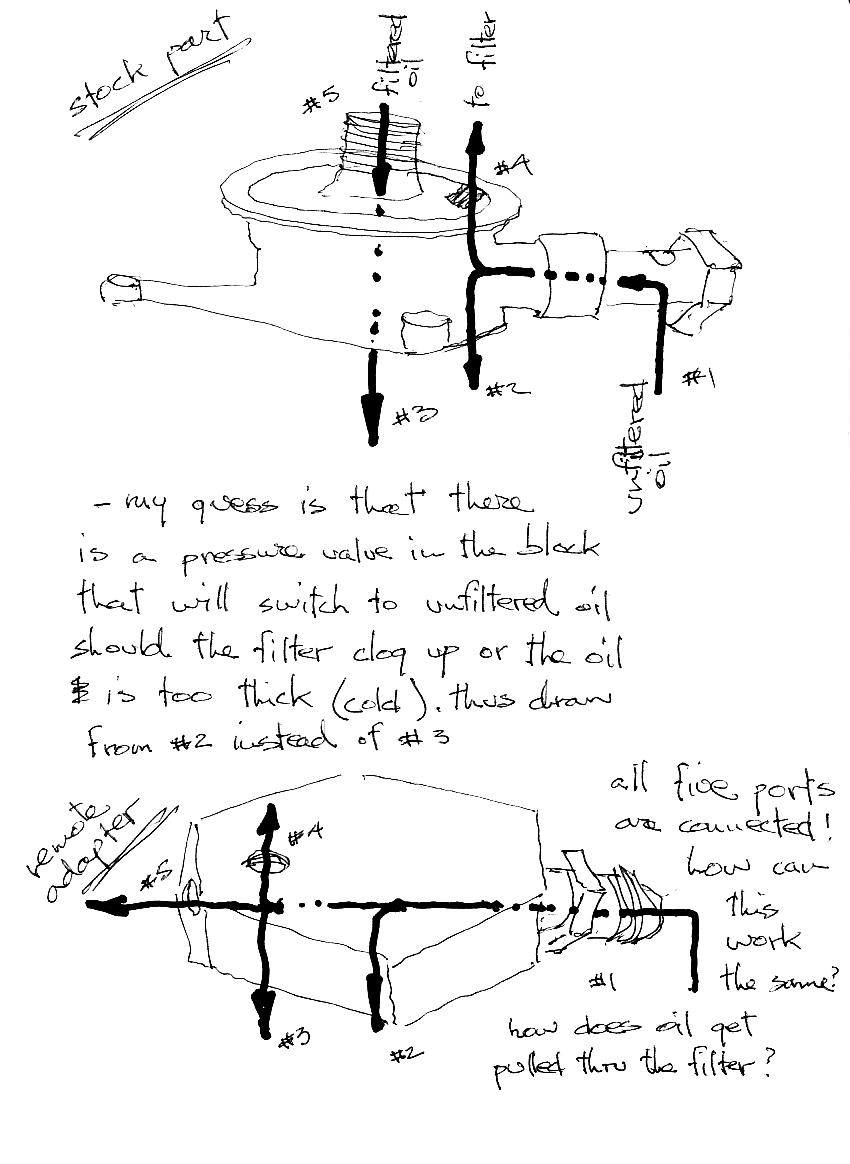 stock part
#5
filtered
oil
to filter
#4
#3
#2
#1
unfiltered
oil
- my guess is that there
is a pressure value in the block
that will switch to unfiltered oil
should the filter clog up or the oil
is too thick (cold). thus draw
from #2 instead of #3
remote
adapter
#5
#4
#3
#2
#1
all five ports
are connected!
how can
this
work
the same?
how does oil get
pulled thru the filter?